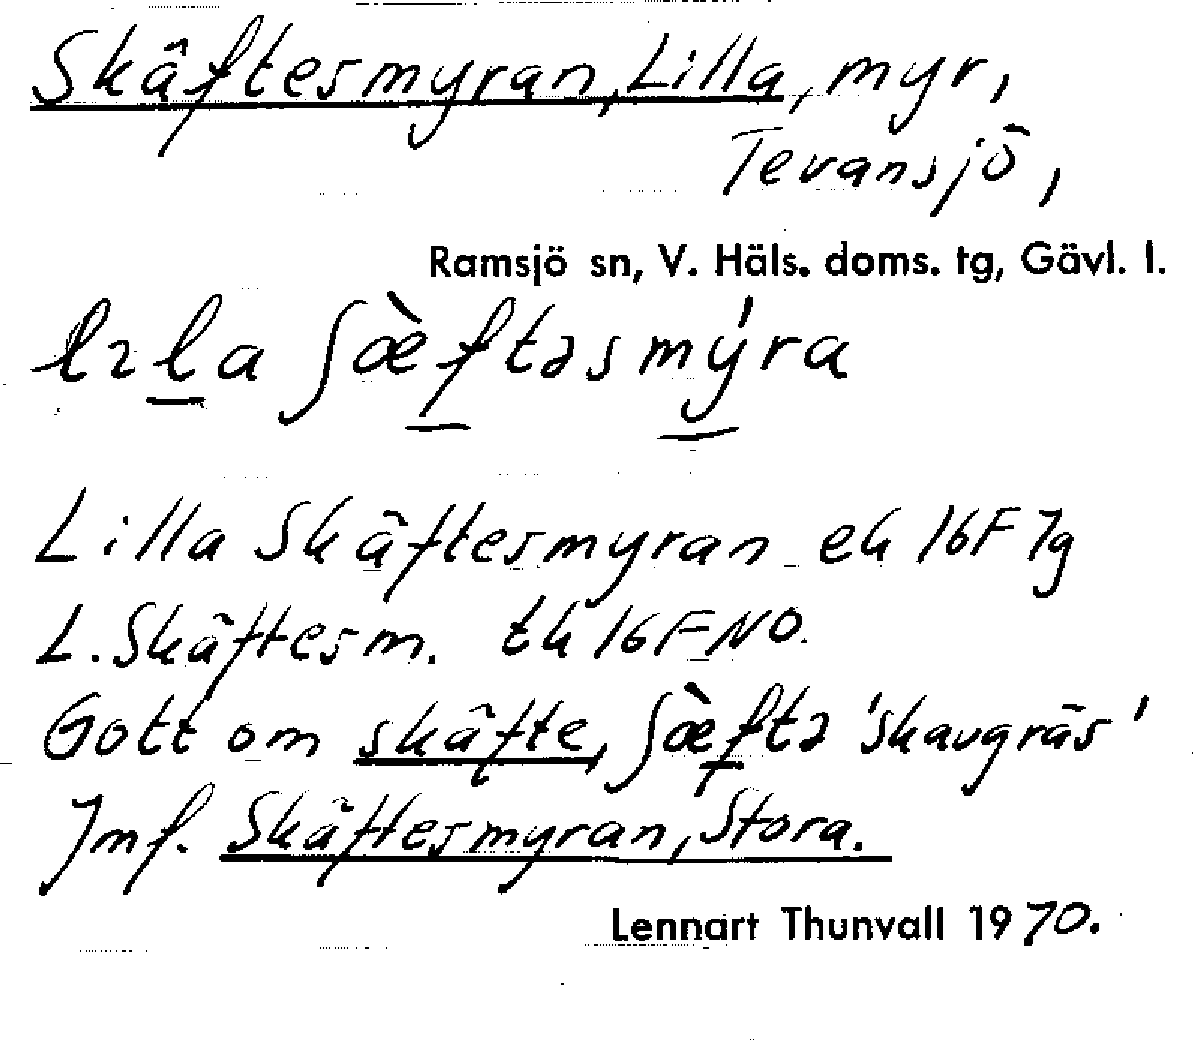 Skäftesmyran, Lilla, myr,
Tevansjö,
Ramsjö sn, V. Häls. doms. tg, Gävl. l.
lɪla ʃæ̀ftəsmýra
Lilla Skäftesmyran ek 16F 7g
L. Skäftesm. tk 16F NO.
Gott om skäfte, ʃæ̀ftə 'skavgräs'
Jmf. Skäftesmyran, Stora.
Lennart Thunvall 1970.